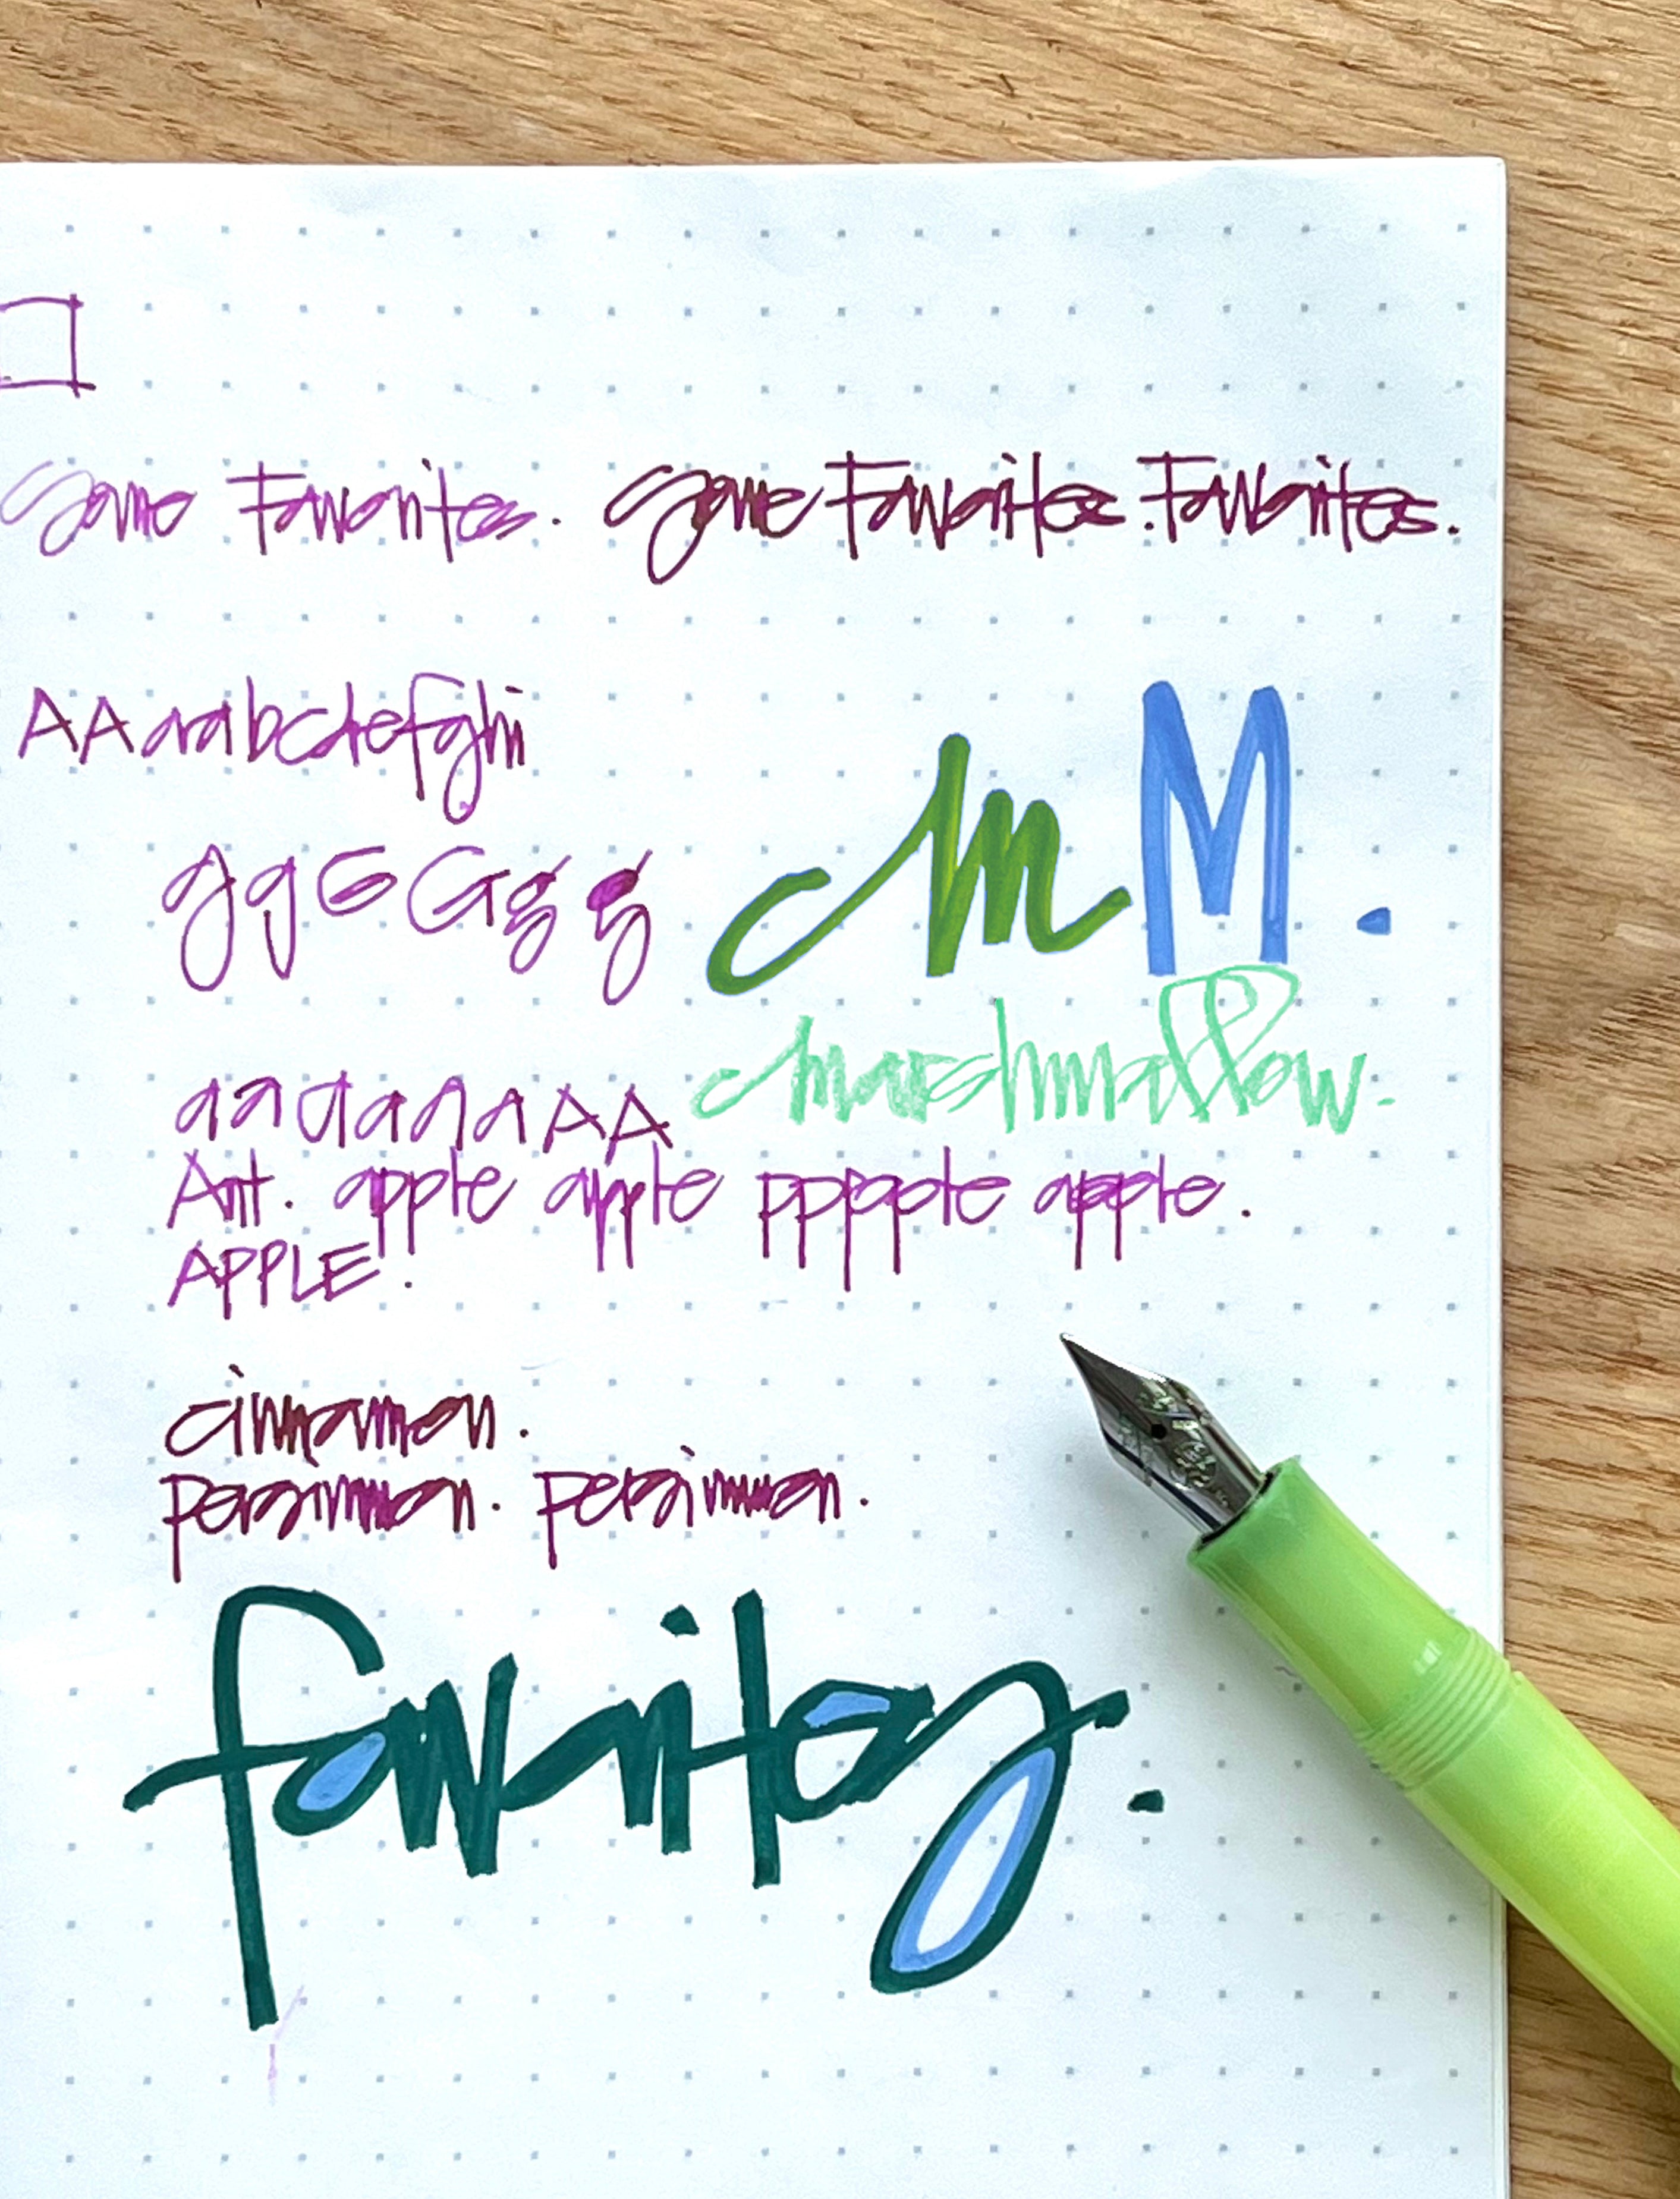 Some Favorites. Some Favorites. Favorites.
AAaabcdefghi
ggGGgg
mM.
marshmallow.
aaaaaaAA
Ant. apple apple pppple apple.
APPLE.
cinnamon.
persimmon. persimmon.
favorites.